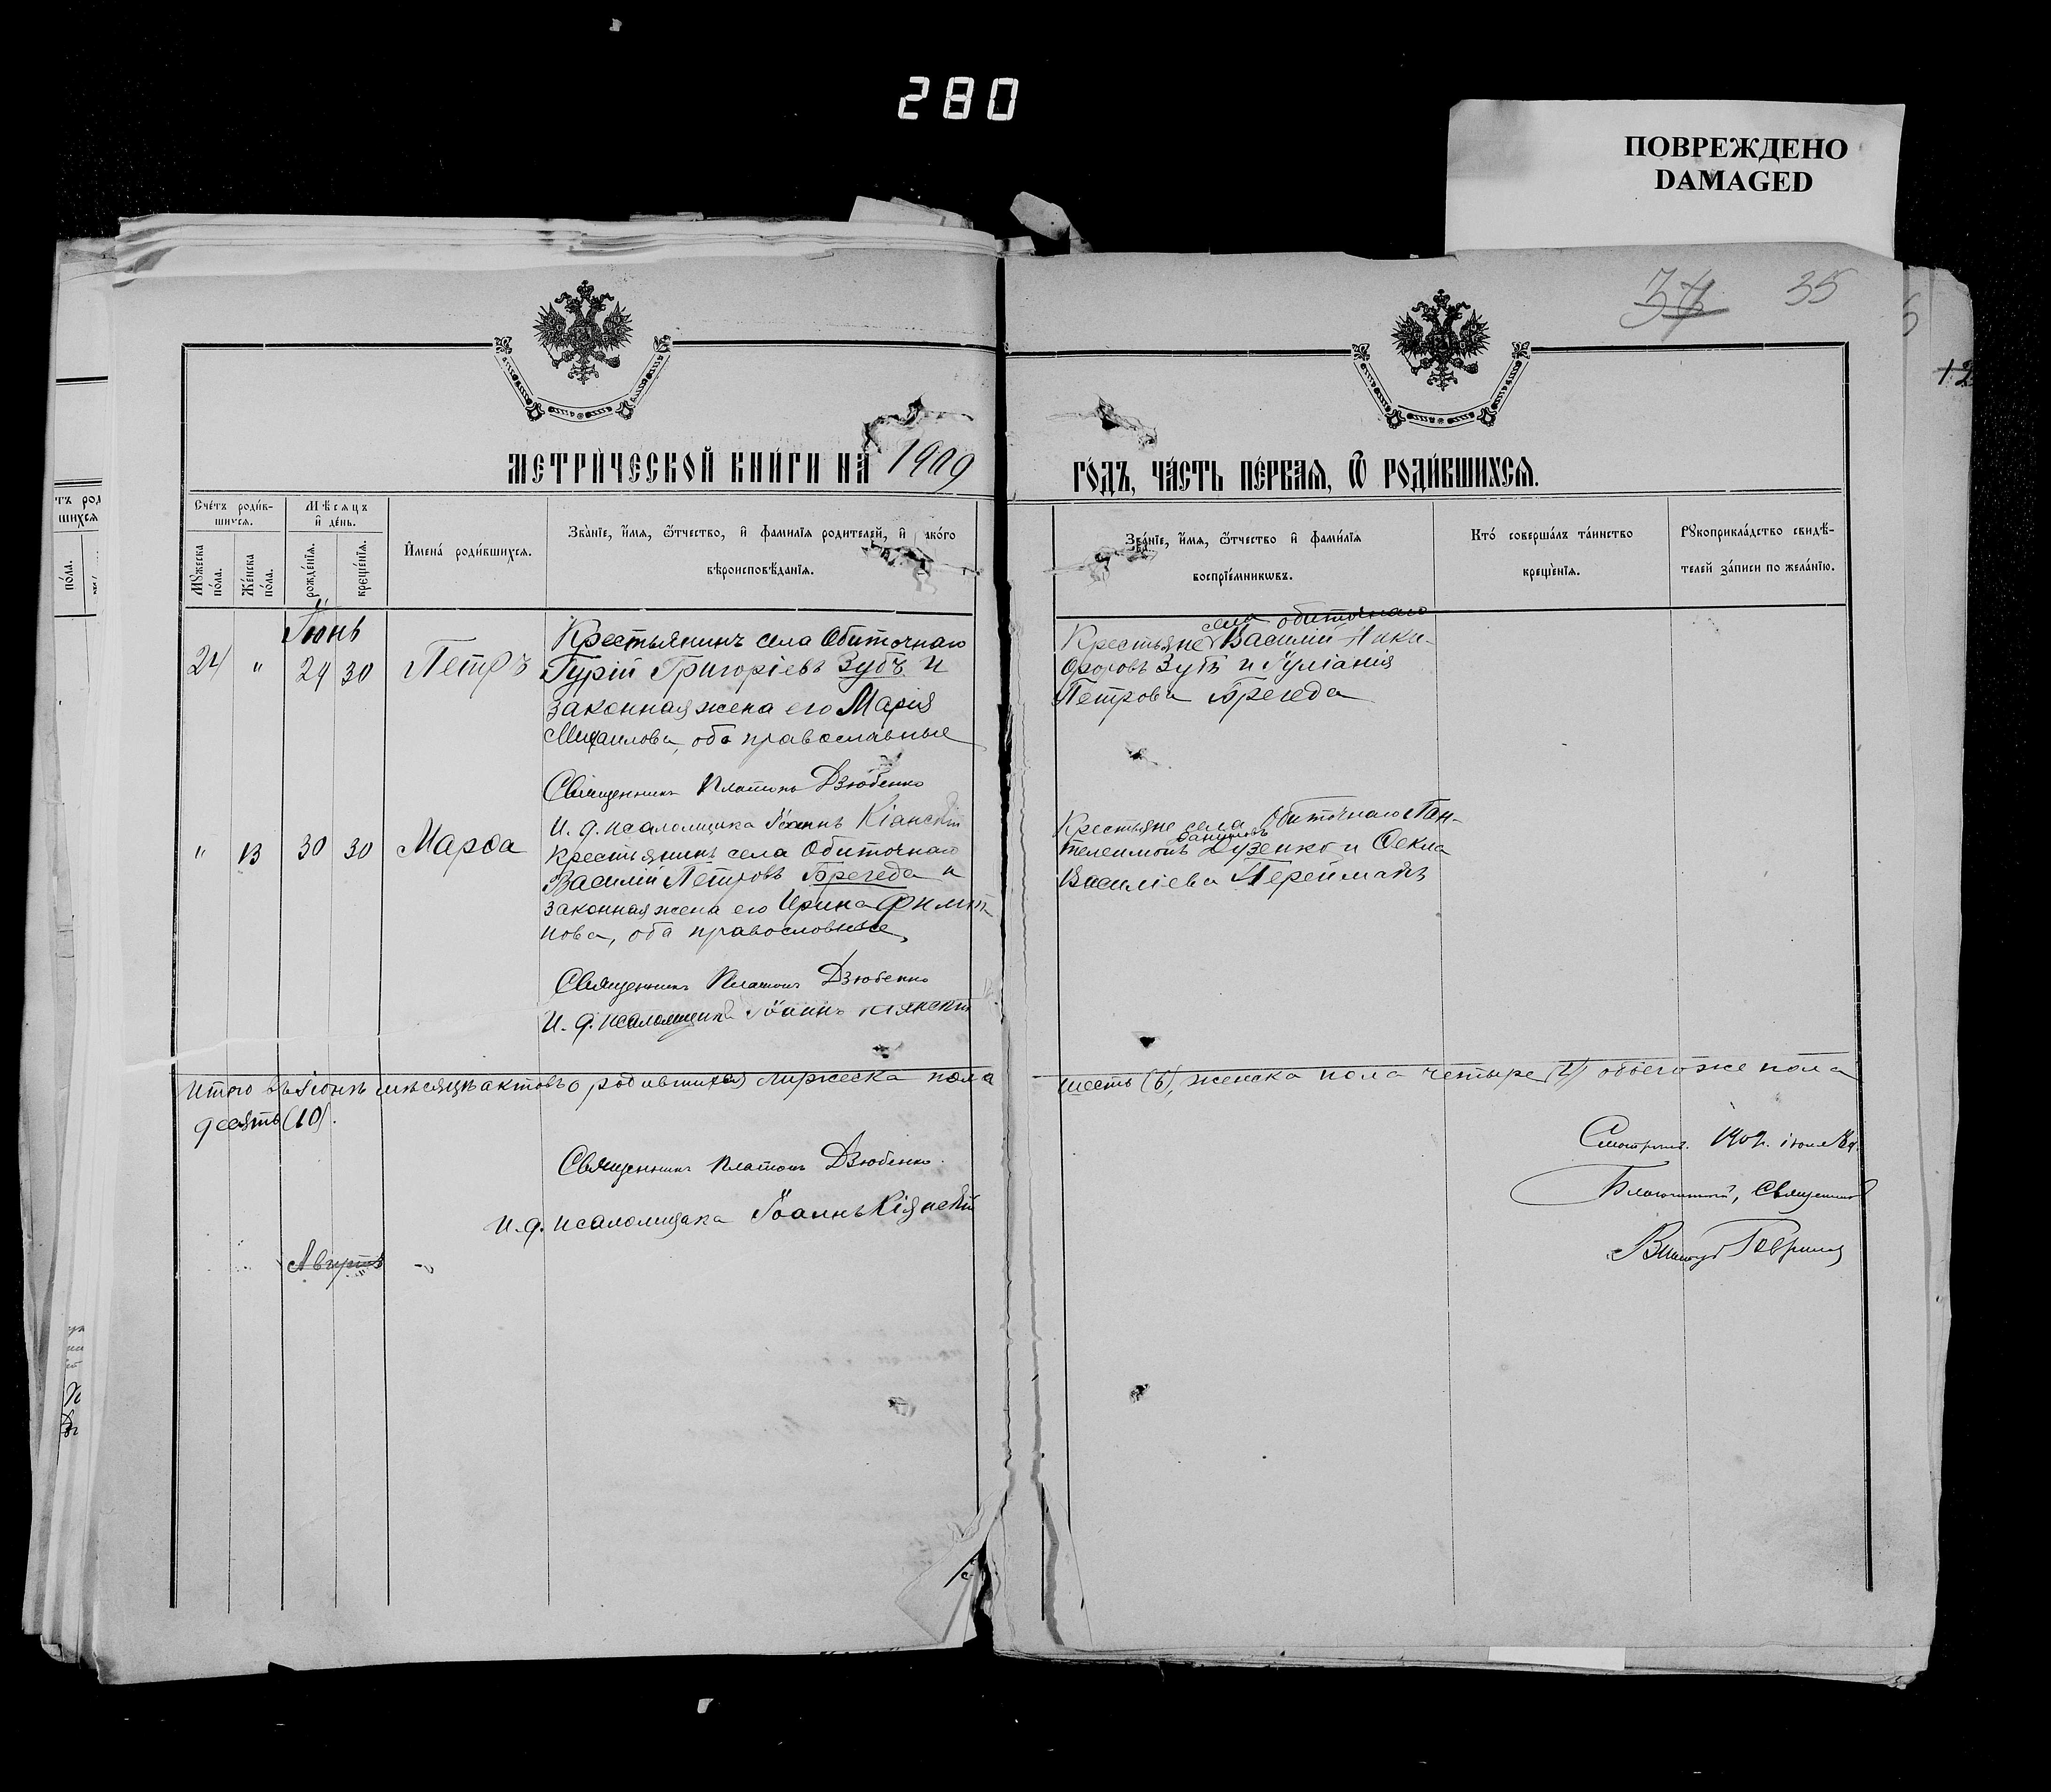 280
ПОВРЕЖДЕНО
DAMAGED
37 35
МЕТРИ́ЧЕСКОЙ КНИ́ГИ НА 1909
ГО́ДЪ, ЧА́СТЬ ПЕ́РВАѦ, Ѿ РОДИ́ВШИХСѦ.
Сче́тъ роди́в-
шихся.
Мѣсяцъ
и҆ де́нь.
Мꙋжеска
по́ла.
Же́нска
по́ла.
рожде́нїѧ.
креще́нїѧ.
И҆мена́ роди́вшихся.
Зва́нїе, и҆́мя, ѻ҆́тчество, и҆ фами́лїя родителей, и҆ како́го
вѣроисповѣ́данїя.
Зва́нїе, и҆́мя, ѻ҆́тчество и҆ фами́лїя
воспрїе́мникѡвъ.
Кто̀ соверша́лъ та́инство
креще́нїя.
Рꙋкоприкла́дство свидѣ́-
телей за́писи по жела́нїю.
Іюнь
24 " 29 30 Петръ
Крестьянинъ села Обиточнаго
Гурій Григоріевъ Зубъ и
законная жена его Марія
Михаилова, оба православные
Священникъ Платонъ Дзюбенко
И. д. псаломщика Іоаннъ Кіянскій
села Обиточнаго
Крестьяне Василій Ники-
форовъ Зубъ и Іуліанія
Петрова Брегеда
" 13 30 30 Марѳа
Крестьянинъ села Обиточнаго
Василій Петровъ Брегеда и
законная жена его Ирина Филип-
пова, оба православные
Священникъ Платонъ Дзюбенко
И. д. псаломщика Іоаннъ Кіянскій
Крестьяне села Обиточнаго Пан-
телеимонъ Даниловъ Дузенко и Ѳекла
Василіева Перейматъ
Итого въ Іюнѣ мѣсяцѣ актовъ о родившихся мужеска пола шесть (6), женска пола четыре (4) обоего же пола
десять (10).
Священникъ Платонъ Дзюбенко.
И. д. псаломщика Іоаннъ Кіянскій
Августъ
Смотрѣлъ. 1909. іюля
Благочинный, Священникъ